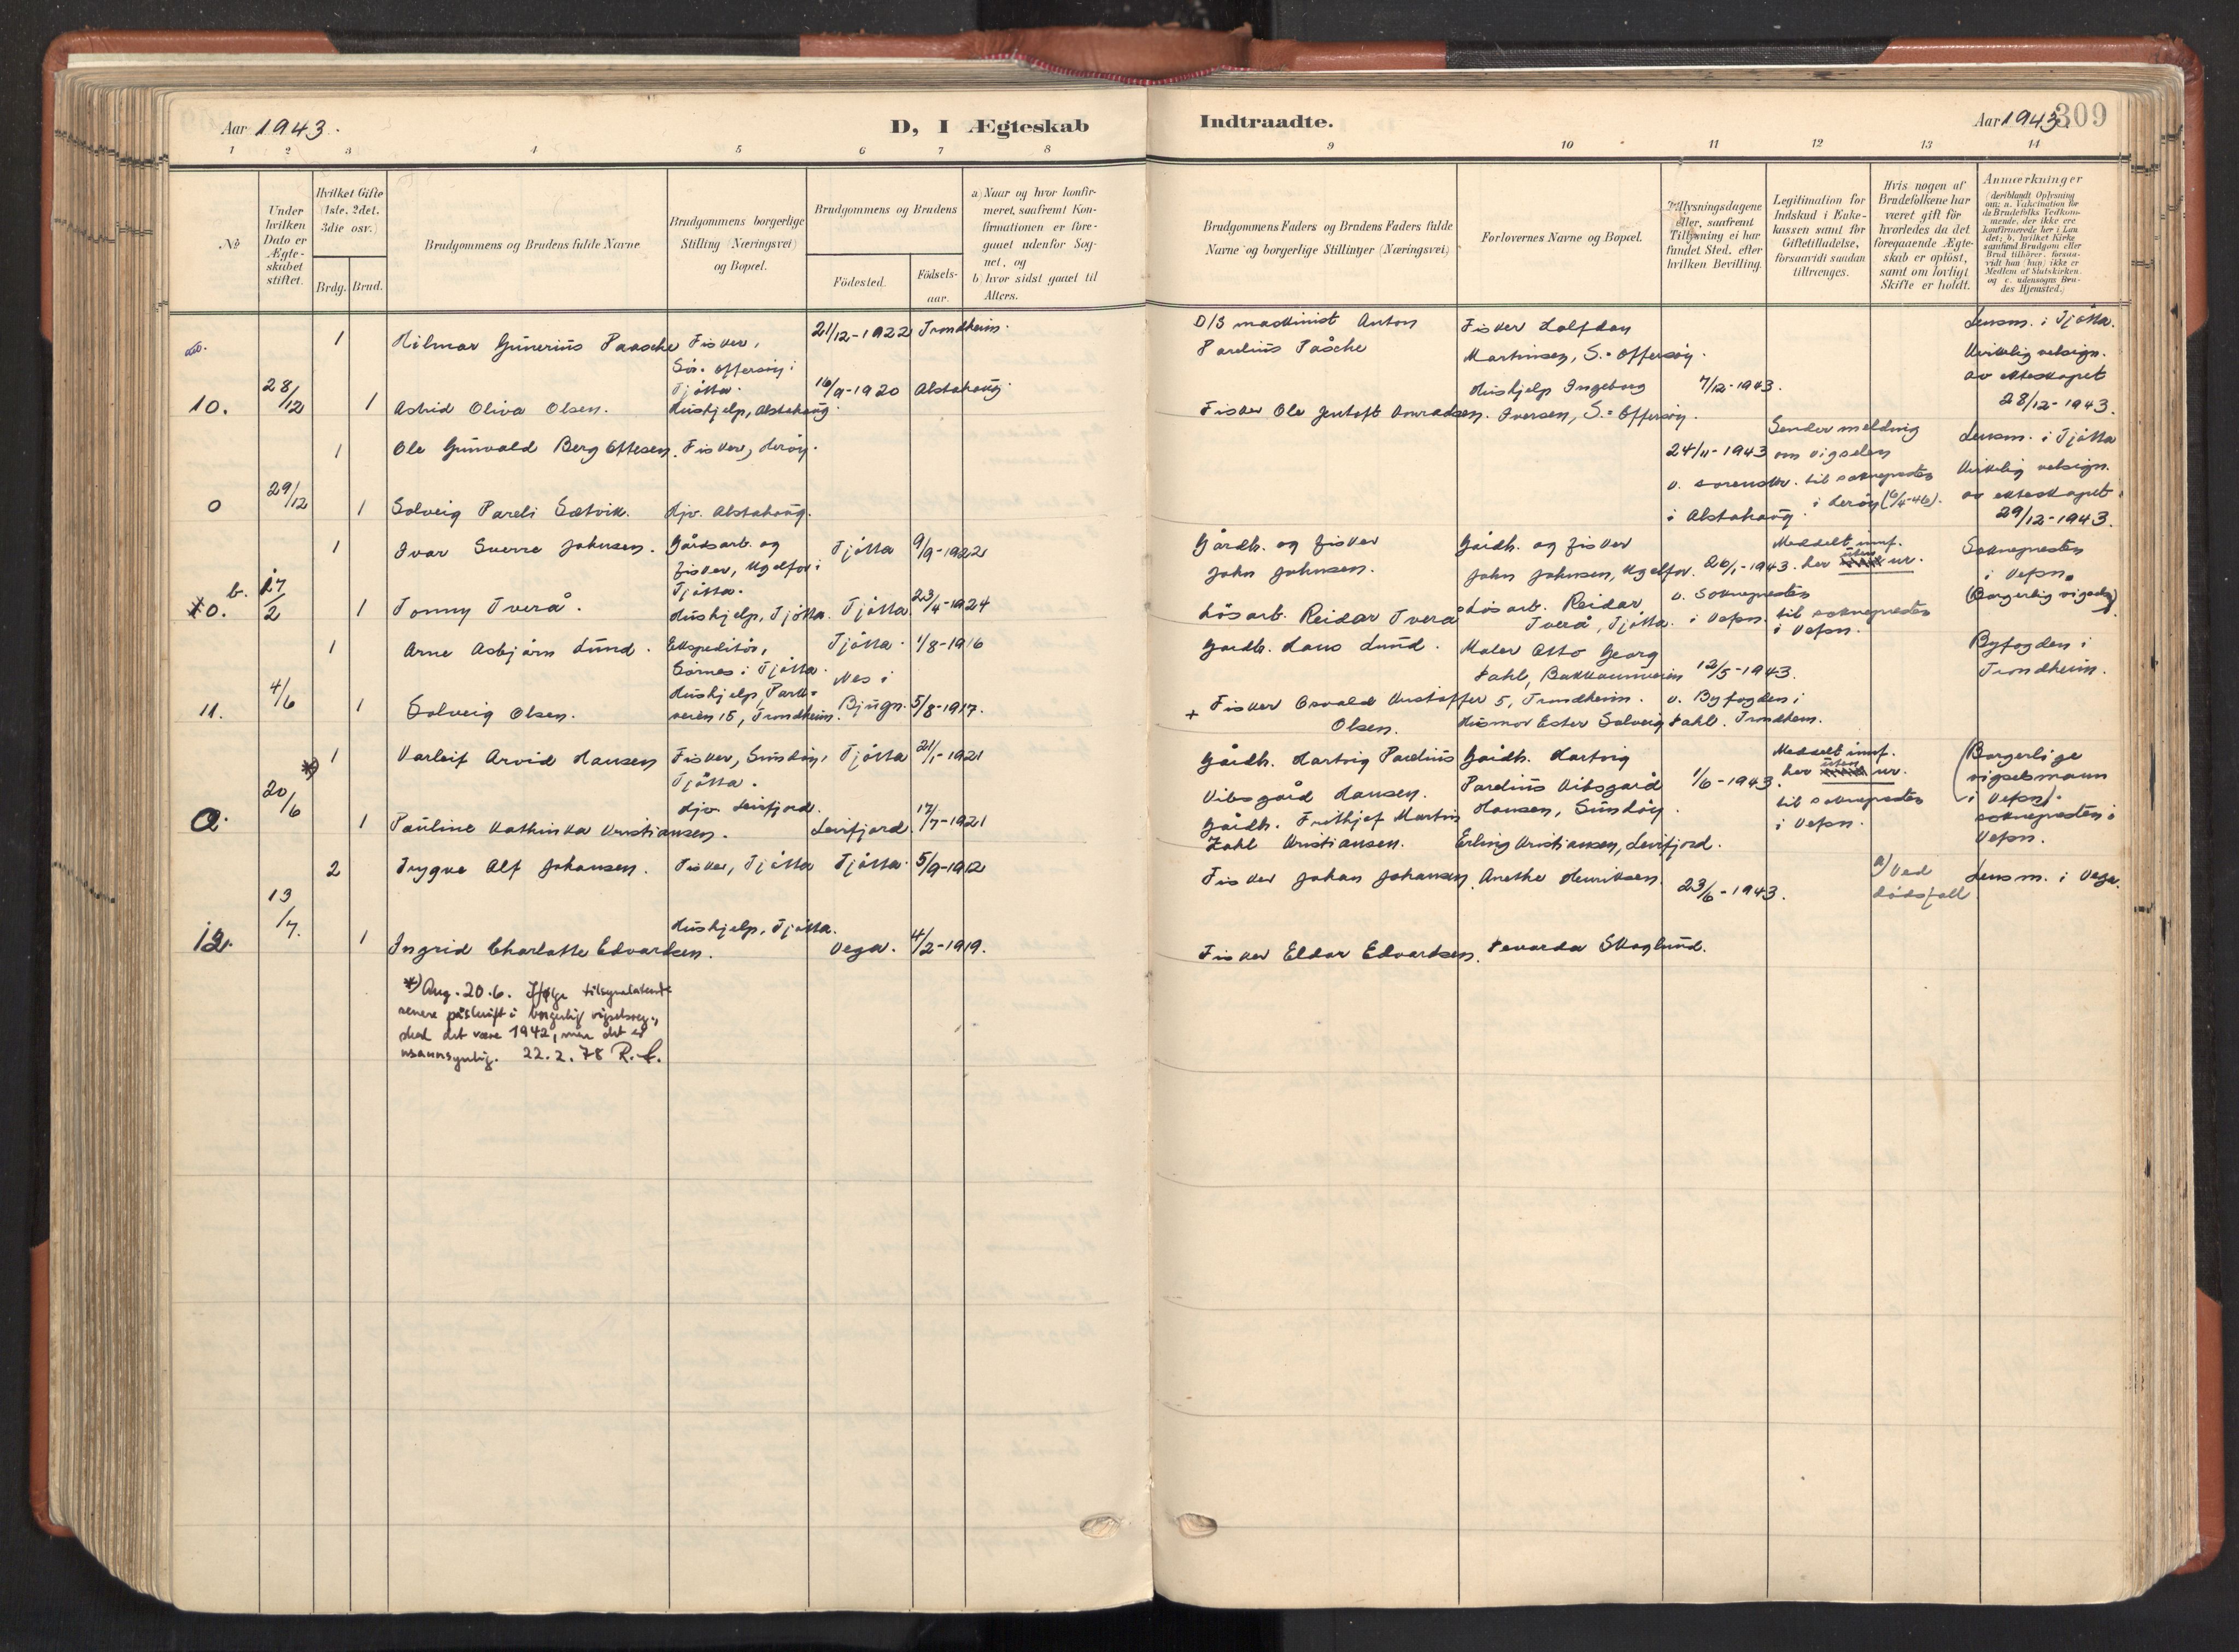 Aar 1943.
D, I Ægteskab
Indtraadte.
Aar 1943.
309
1 2 3 4 5 6 7 8 9 10 11 12 13 14
№
Under
hvilken
Dato er
Ægte-
skabet
stiftet.
Hvilket Gifte
(1ste, 2det,
3die osv.)
Brdg.
Brud.
Brudgommens og Brudens fulde Navne
Brudgommens borgerlige
Stilling (Næringsvei)
og Bopæl.
Brudgommens og Brudens
Födested.
Födsels-
aar.
a) Naar og hvor konfir-
meret, saafremt Kon-
firmationen er fore-
gaaet udenfor Sog-
net, og
b) hvor sidst gaaet til
Alters.
Brudgommens Faders og Brudens Faders fulde
Navne og borgerlige Stillinger (Næringsvei)
Forlovernes Navne og Bopæl.
Tillysningsdagene
eller, saafremt
Tillysning ei har
fundet Sted, efter
hvilken Bevilling.
Legitimation for
Indskud i Enke-
kassen samt for
Giftetilladelse,
forsaavidt saadan
tiltrænges.
Hvis nogen af
Brudefolkene har
været gift för
hvorledes da det
foregaaende Ægte-
skab er oplöst,
samt om lovligt
Skifte er holdt.
Anmærkninger
(deriblandt Oplysning
om: a. Vakcination for
de Brudefolks Vedkom-
mende, der ikke ere
konfirmerede her i Lan
det; b. hvilket Kirke
samfund Brudgom eller
Brud tilhörer, forsaa-
vidt han (hun) ikke er
Medlem af Statskirken
og c. udensogns Bru-
des Hjemsted.)
10.
28/12
1
Hilmar Gunerius Paasche
Fisker,
Sör-Offersöy i
Tjötta.
21/12-1922
Trondheim.
D/S maskinist Anton
Parelius Påsche
Fisker Halfdan
Martinsen, S.-Offersöy.
Lensm. i Tjötta.
Kirkelig velsign.
av ekteskapet
28/12-1943.
1
Astrid Oliva Olsen.
Hushjelp, Alstahaug.
16/9-1920
Alstahaug.
Fisker Ole Jentoft Konradsen.
Hushjelp Ingeborg
Iversen, S.-Offersöy.
7/12-1943.
0
29/12
1
Ole Gunvald Berg Ottesen.
Fisker, Heröy.
24/11-1943
v. sorenskr.
i Alstahaug
Sender melding
om vigselen
til soknepresten
i Heröy (6/4-46).
Lensm. i Tjötta
Kirkelig velsign.
av ekteskapet
29/12-1943.
1
Solveig Pareli Sætvik.
Hjv. Alstahaug.
b.
0.
17/2
1
Ivar Sverre Johnsen.
Gårdsarb. og
fisker, Ugelfor i
Tjötta.
Tjötta
9/9-1922
Gårdb. og fisker
John Johnsen.
Gårdb. og fisker
John Johnsen, Ugelfor.
26/1-1943.
v. Soknepresten
i Vefsn.
Meddelt innf.
her uten nr.
til soknepresten
i Vefsn.
Soknepresten
i Vefsn.
(Borgerlig vigsel)
1
Tonny Tverå.
Hushjelp, Tjötta.
Tjötta
23/4-1924
Lösarb. Reidar Tverå
Lösarb. Reidar
Tverå, Tjötta.
11.
4/6
1
Arne Asbjörn Lund.
Ekspeditör,
Sörnes i Tjötta.
Tjötta.
1/8-1916
Gardb. Laus Lund.
Maler Otto Georg
Dahl, Bakkaunveien
5, Trondheim.
12/5-1943.
v. Byfogden i
Trondheim.
Byfogden i
Trondheim.
1
Solveig Olsen.
Hushjelp, Park-
veien 15, Trondheim.
Nes i
Bjugn.
5/8-1917.
+ Fisker Osvald Kristoffer
Olsen.
Husmor Ester Solveig Dahl.
0.
*)
20/6
1
Karleif Arvid Hansen
Fisker, Sundöy,
Tjötta.
Tjötta
21/1-1921
Gårdb. Hartvig Parelius
Vibsgård Hansen.
Gårdb. Hartvig
Parelius Vibsgård
Hansen, Sundöy.
1/6-1943.
Meddelt innf.
her uten nr.
til soknepresten
i Vefsn.
(Borgerlige
vigselsmann
i Vefsn).
soknepresten i
Vefsn.
1
Pauline Kathinka Kristiansen.
Hjv. Leirfjord.
Leirfjord.
17/7-1921
Gårdb. Frithjof Martin
Zahl Kristiansen.
Erling Kristiansen, Leirfjord.
12.
13/7.
2
Trygve Alf Johansen.
Fisker, Tjötta
Tjötta.
5/9-1912
Fisker Johan Johansen.
Anethe Henriksen.
23/6-1943.
a) Ved
dödsfall
Lensm. i Vega.
1
Ingrid Charlotte Edvardsen.
Hushjelp, Tjötta.
Vega.
4/2-1919.
Fisker Eldor Edvardsen.
Skoglund.
*) Ang. 20.6. Ifølge tilsynelatende
senere påskrift i borgerlig vigselsreg.,
skal det være 1942, men det er
usannsynlig. 22.2.78 R.